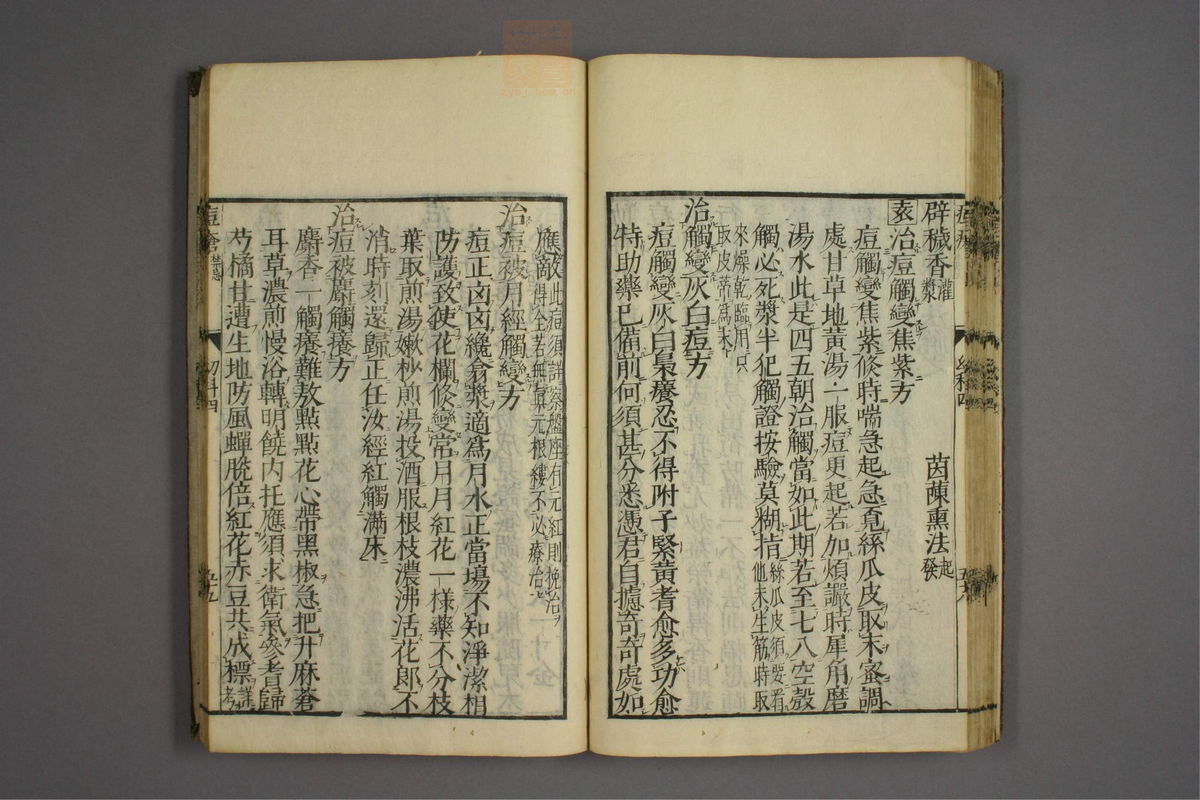 辟穢香 灌漿 茵蔯熏法 起發
袁 治痘觸變焦紫方
痘觸變焦紫倏時喘急起急覔絲瓜皮取末蜜調
處甘草地黃湯一服痘更起若加煩讝時犀角磨
湯水此是四五朝治觸當如此期若至七八空殼
觸必死漿半犯觸證按驗莫糊指 絲瓜皮須要看他未生筋時取
來燥乾臨用只取皮蒂爲末
治觸變灰白痘方
痘觸變灰白梟癢忍不得附子緊黃耆愈多功愈
特助藥已備前何須甚分悉憑君自攄奇奇處如
應敵 此痘須詳察盤座有元紅則挽治得全若無眞元根縷不必療治
治痘被月經觸變方
痘正卤卤纔翕漿適爲月水正當場不知淨潔相
防護致使花欄倏變常月月紅花一樣藥不分枝
葉取煎湯嫩杪煎湯投酒服根枝濃沸活花郎不
消時刻還歸正任汝經紅觸滿床
治痘被麝觸癢方
麝香一觸癢難敖點點花心帶黑椒急把升麻蒼
耳草濃煎慢浴轉明饒内托應須求衛氣參耆歸
芍橘甘遭生地防風蟬脫倍紅花赤豆共成標 詳考
痘瘡 禁忌